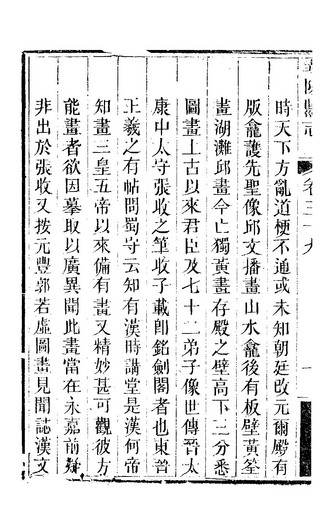 卷三十九
時天下方亂道梗不通或未知朝廷改元爾殿有
版龕護先聖像邱文播畫山水龕後有板壁黃筌
畫湖灘邱畫今亡獨黃畫存殿之壁高下三分悉
圖畫上古以來君臣及七十二弟子像世傳晉太
康中太守張收之筆收子載卽銘劍閣者也東晉
王羲之有帖問蜀守云知有漢時講堂是漢何帝
知畫三皇五帝以來備有畫又精妙甚可觀彼方
能畫者欲因摹取以廣異聞此畫當在永嘉前疑
非出於張收又按元豐郭若虛圖畫見聞誌漢文